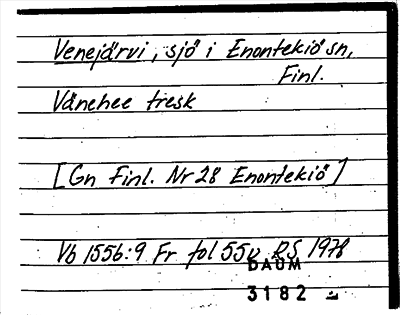 Venejärvi, sjö i Enontekiö sn,
Finl.
Vänehee tresk
[Gn Finl. Nr 28 Enontekiö]
Vb 1556:9 Fr fol 55v RS 1978
DAUM
3182